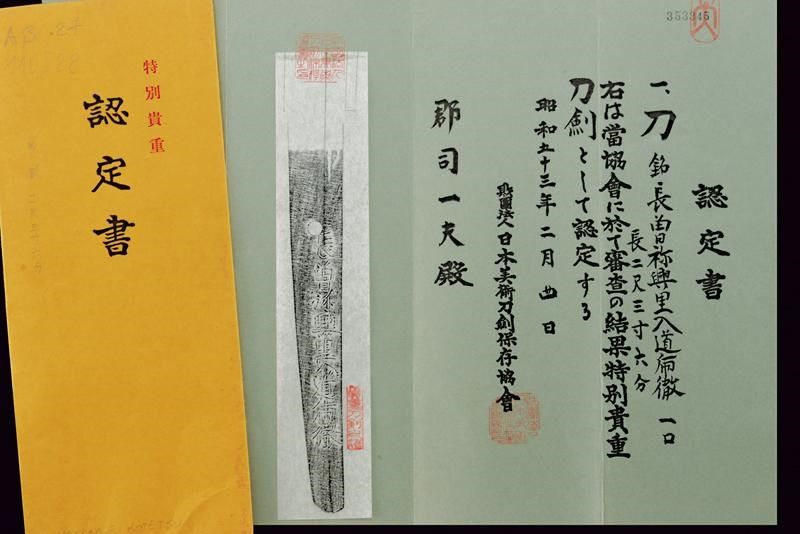 353345
認定書
一、刀 銘 長曽祢興里入道乕徹 一口
長二尺三寸六分
右は當協會に於て審査の結果特別貴重
刀劍として認定する
昭和五十三年二月四日
財團法人日本美術刀劍保存協會
郡司一夫殿
特別貴重
認定書